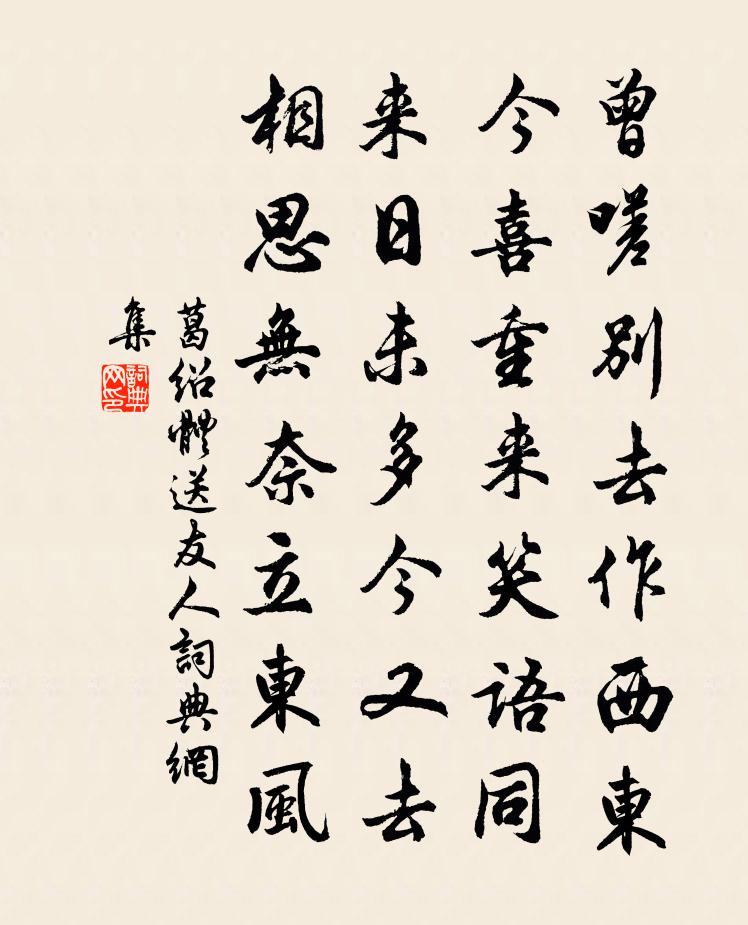 曾嗟別去作西東
今喜重来笑語同
来日未多今又去
相思無奈立東風
葛绍體送友人詞典網
集
詞典网印